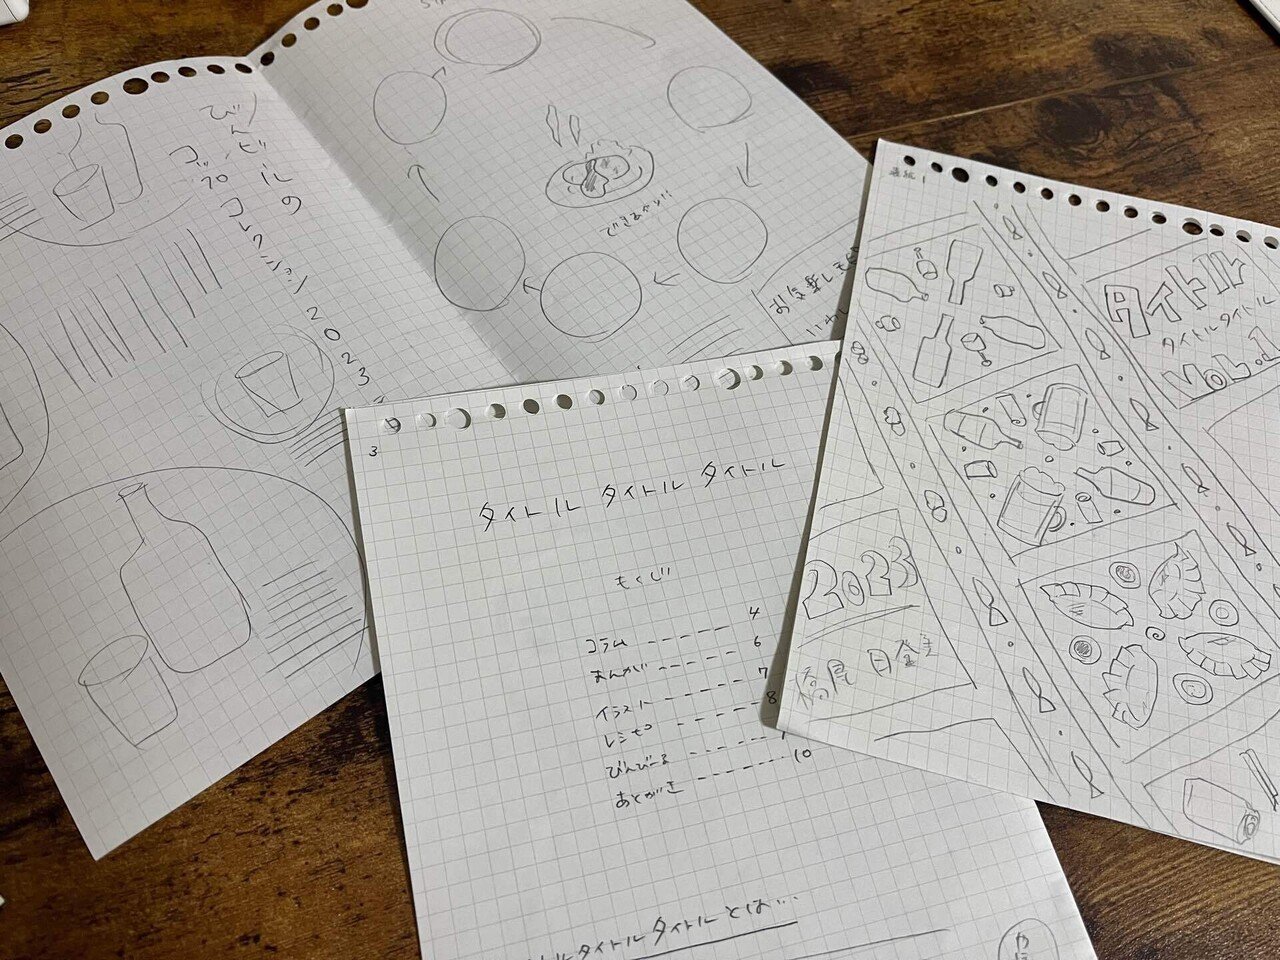 びんビールの
コップ コレクション 2023
できあがり!!
3
タイトル タイトル タイトル
もくじ
コラム 4
まんが 6
イラスト 7
レシピ 8
びんびーる
あとがき 10
タイトルタイトルとは…
表紙 1
タイトル
タイトルタイトル
Vol.1
2023